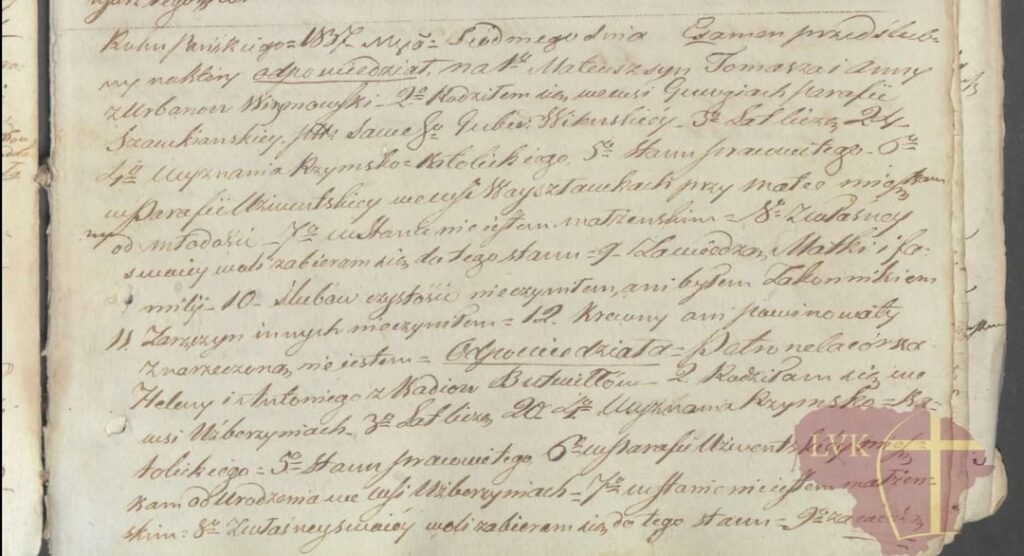 Roku Pańskiego = 1837 Mca = Siodmego dnia Examen przedślub-
ny na ktory odpowiedział. na 1o Mateusz syn Tomasza i Anny
z Urbanow 2o Rodziłem się we wsi Gawgiach parafii
Szawkianskiey Gube: Wilenskiey - 3o Lat liczę 24
4o Wyznania Rzymsko = Katolickiego. 5o Stanu pracowitego - 6o
w Parafii Użwentskiey we wsi przy matce mieszkam
od młodości - 7o w stanie nie iestem małżenskim = 8o Z własney
swoiey woli zabieram się do tego stanu = 9 - Za wiedzą Matki i fa-
milij - 10 - Slubow czystości nie czyniłem, ani byłem Zakonnikiem
11. Zaręczyn innych nie czyniłem = 12. Krewny ani powinowaty
z narzeczoną nie iestem = Odpowiedziała = Petronela corka
Heleny i Antoniego z Butwiłłow - 2. Rodziłam się we
wsi Użberzyniach - 3o Lat liczę 20 4o Wyznania Rzymsko = Ka-
tolickiego = 5o Stanu pracowitego 6o w Parafii Użwentskiey miesz-
kam od Urodzenia we wsi Użberzyniach = 7o w stanie nie iestem małżen-
skim = 8o Z własney swoiey woli zabieram się do tego stanu = 9o za
LVK